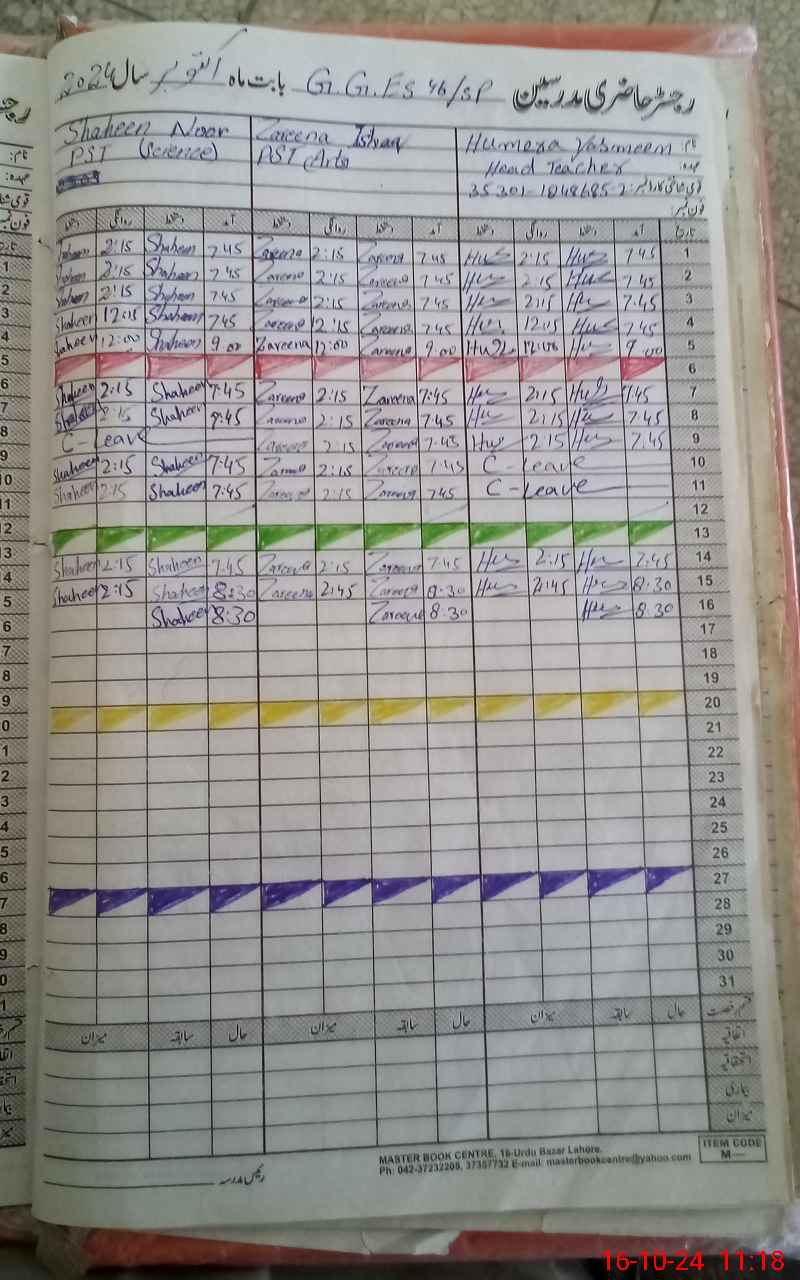 رجسٹر حاضری مدرسین G.G.E.S 46/SP بابت ماہ اکتوبر سال 2024
Shaheen Noor Zareena Ishaq Humera Yasmeen نام:
PST (Science) PST (Arts) Head Teacher عہدہ:
قومی شناختی کارڈ نمبر: 35301-1848685-2
فون نمبر:
تاریخ آمد دستخط روانگی دستخط آمد دستخط روانگی دستخط آمد دستخط روانگی دستخط
Shaheen 2:15 Shaheen 7:45 Zareena 2:15 Zareena 7:45 2:15 7:45 1
Shaheen 2:15 Shaheen 7:45 Zareena 2:15 Zareena 7:45 2:15 7:45 2
Shaheen 2:15 Shaheen 7:45 Zareena 2:15 Zareena 7:45 2:15 7:45 3
Shaheen 12:15 Shaheen 7:45 Zareena 12:15 Zareena 7:45 12:15 7:45 4
Shaheen 12:00 Shaheen 9:00 Zareena 12:00 Zareena 9:00 12:00 9:00 5
6
Shaheen 2:15 Shaheen 7:45 Zareena 2:15 Zareena 7:45 2:15 7:45 7
Shaheen 2:15 Shaheen 7:45 Zareena 2:15 Zareena 7:45 2:15 7:45 8
C-Leave Zareena 2:15 Zareena 7:45 2:15 7:45 9
Shaheen 2:15 Shaheen 7:45 Zareena 2:15 Zareena 7:45 C-Leave 10
Shaheen 2:15 Shaheen 7:45 Zareena 2:15 Zareena 7:45 C-Leave 11
12
13
Shaheen 2:15 Shaheen 7:45 Zareena 2:15 Zareena 7:45 2:15 7:45 14
Shaheen 2:15 Shaheen 8:30 Zareena 2:45 Zareena 8:30 2:45 8:30 15
Shaheen 8:30 Zareena 8:30 8:30 16
17
18
19
20
21
22
23
24
25
26
27
28
29
30
31
قسم رخصت حال سابقہ میزان حال سابقہ میزان حال سابقہ میزان
اتفاقیہ
استحقاقیہ
بیماری
میزان
رئیس مدرسہ
MASTER BOOK CENTRE, 16-Urdu Bazar Lahore.
Ph: 042-37232205, 37357732 E-mail: masterbookcentre@yahoo.com
ITEM CODE
M—
16-10-24 11:18